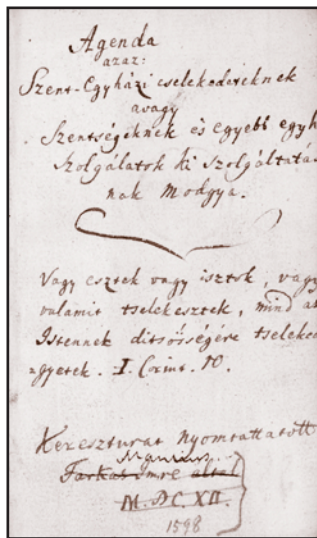 Agenda
azaz:
Szent-Egyházi cselekedeteknek
avagy
Szentségeknek és egyebb egyh
Szolgálatok ki Szolgáltatás
nak Modgya.
Vagy esztek vagy isztok, vagy
valamit tselekesztek, mind az
Istennek ditsősségére tseleked
gyetek. I. Corint. 10.
Kereszturat Nyomtattatott
Manlius
Farkas Imre által
M.DC.XII.
1598